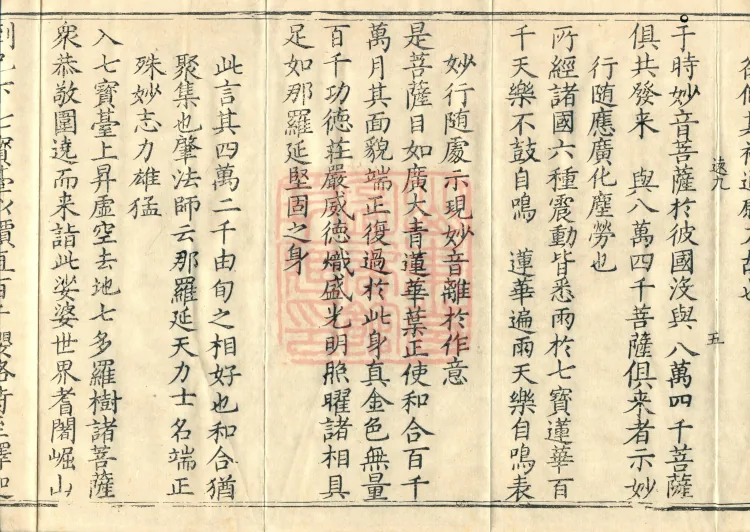 于時妙音菩薩於彼國沒與八萬四千菩薩
俱共發来　與八萬四千菩薩俱来者示妙
行随應廣化塵勞也
所經諸國六種震動皆悉雨於七寶蓮華百
千天樂不鼓自鳴　蓮華遍雨天樂自鳴表
妙行随處示現妙音離於作意
是菩薩目如廣大青蓮華葉正使和合百千
萬月其面貌端正復過於此身真金色無量
百千功德莊嚴威德熾盛光明照曜諸相具
足如那羅延堅固之身
此言其四萬二千由旬之相好也和合猶
聚集也肇法師云那羅延天力士名端正
殊妙志力雄猛
入七寶臺上昇虛空去地七多羅樹諸菩薩
衆恭敬圍遶而来詣此娑婆世界耆闍崛山
五